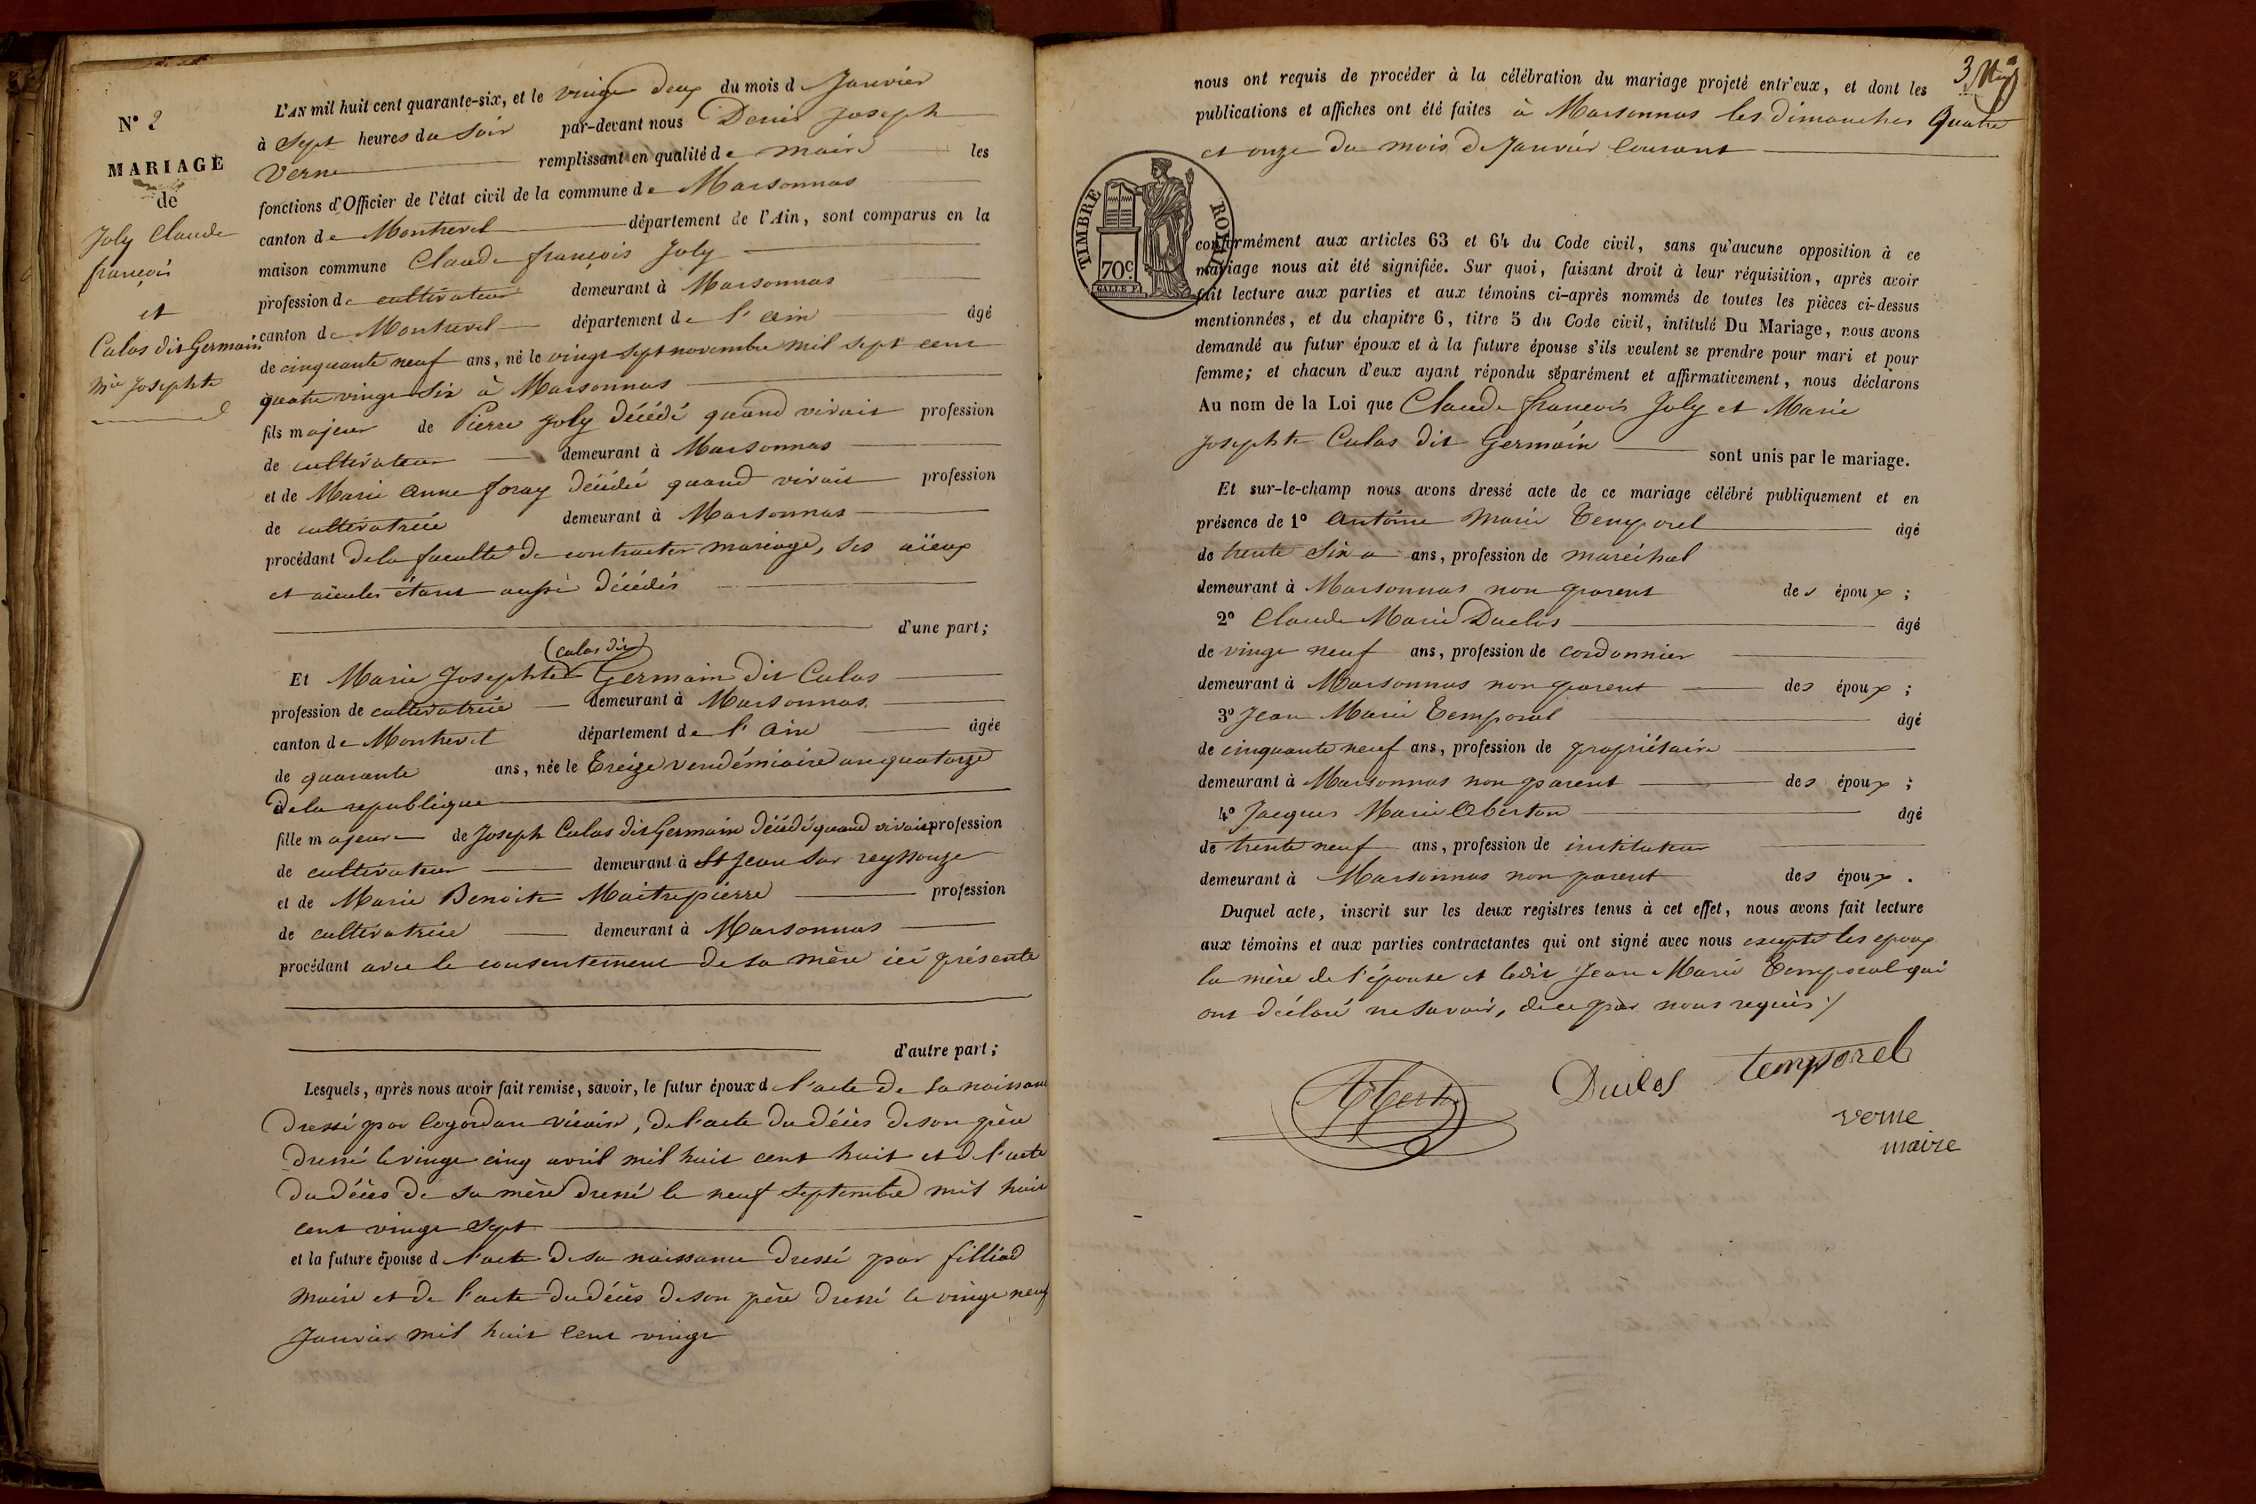 N° 2
MARIAGE
de
Joly Claude
françois
et
Calas dit Germain
Mie Josephte
L'AN mil huit cent quarante-six, et le vingt deux du mois d Janvier
à Sept heures du Soir par-devant nous Denis Joseph
Verne remplissant en qualité de maire les
fonctions d'Officier de l'état civil de la commune de Marsonnas
canton de Montrevel département de l'Ain, sont comparus en la
maison commune Claude françois Joly
profession de cultivateur demeurant à Marsonnas
canton de Montrevel département de l'ain âgé
de cinquante neuf ans, né le vingt sept novembre mil sept cent
quatre vingt six à Marsonnas
fils majeur de Pierre Joly décédé quand vivait profession
de cultivateur demeurant à Marsonnas
et de Marie anne foray décédée quand vivait profession
de cultivatrice demeurant à Marsonnas
procédant de la faculté de contracter mariage, ses aïeux
et aïeules étant aussi décédés
d'une part;
(calas dit)
Et Marie Josephte Germain dit Calas
profession de cultivatrice demeurant à Marsonnas
canton de Montrevel département de l'ain âgée
de quarante ans, née le treize vendémiaire an quatorze
de la republique
fille majeure de Joseph Calas dit Germain décédé quand vivait profession
de cultivateur demeurant à St Jean sur reyssouze
et de Marie Benoite Maitrepierre profession
de cultivatrice demeurant à Marsonnas
procédant avec le consentement de sa mère ici présente
d'autre part;
Lesquels, après nous avoir fait remise, savoir, le futur époux d l'acte de sa naissance
dressé par vicaire, de l'acte du décès de son père
dressé le vingt cinq avril mil huit cent huit et d l'acte
du décès de sa mère dressé le neuf septembre mil huit
cent vingt sept
et la future épouse d l'acte de sa naissance dressé par filliod
maire et de l'acte du décès de son père dressé le vingt neuf
Janvier mil huit cent vingt
3
nous ont requis de procéder à la célébration du mariage projeté entr'eux, et dont les
publications et affiches ont été faites à Marsonnas les dimanches quatre
et onze du mois de Janvier courant
TIMBRE ROYAL
70 c.
conformément aux articles 63 et 64 du Code civil, sans qu'aucune opposition à ce
mariage nous ait été signifiée. Sur quoi, faisant droit à leur réquisition, après avoir
fait lecture aux parties et aux témoins ci-après nommés de toutes les pièces ci-dessus
mentionnées, et du chapitre 6, titre 5 du Code civil, intitulé Du Mariage, nous avons
demandé au futur époux et à la future épouse s'ils veulent se prendre pour mari et pour
femme; et chacun d'eux ayant répondu séparément et affirmativement, nous déclarons
Au nom de la Loi que Claude françois Joly et Marie
Josephte Calas dit Germain sont unis par le mariage.
Et sur-le-champ nous avons dressé acte de ce mariage célébré publiquement et en
présence de 1° antoine Marie Temporel âgé
de trente Six ans, profession de maréchal
demeurant à Marsonnas non parent des époux;
2° Claude Marie Duclos âgé
de vingt neuf ans, profession de cordonnier
demeurant à Marsonnas non parent des époux;
3° Jean Marie Temporal âgé
de cinquante neuf ans, profession de propriétaire
demeurant à Marsonnas non parent des époux;
4° Jacques Marie Oberton âgé
de trente neuf ans, profession de instituteur
demeurant à Marsonnas non parent des époux.
Duquel acte, inscrit sur les deux registres tenus à cet effet, nous avons fait lecture
aux témoins et aux parties contractantes qui ont signé avec nous excepté les époux
la mère de l'épouse et ledit Jean Marie Temporal qui
ont déclaré ne savoir, de ce par nous requis
Duclos temporel
verne
maire